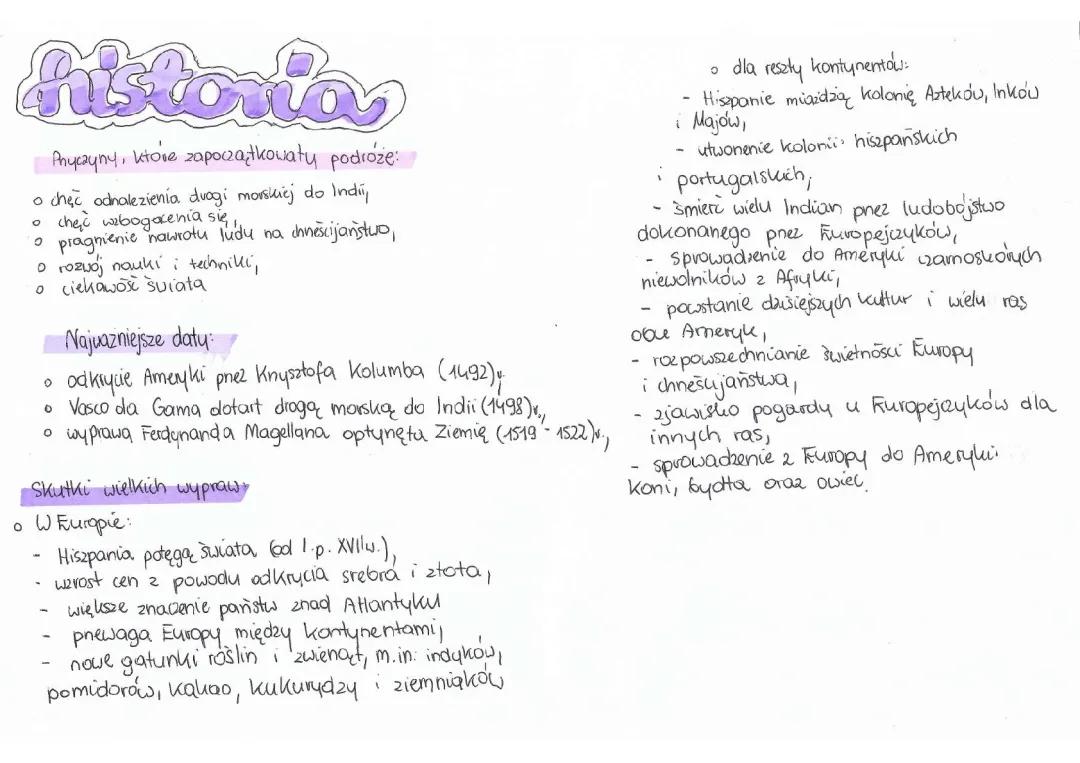 historia
Przyczyny, które zapoczątkowały podróże:
o chęć odnalezienia drogi morskiej do Indii,
o chęć wzbogacenia się,
o pragnienie nawrotu ludu na chrześcijaństwo,
o rozwój nauki i techniki,
o ciekawość świata
Najważniejsze daty:
o odkrycie Ameryki przez Krzysztofa Kolumba (1492)r.
o Vasco da Gama dotarł drogą morską do Indii (1498)r.,
o wyprawa Ferdynanda Magellana opłynęła Ziemię (1519 - 1522)r.,
Skutki wielkich wypraw:
o W Europie:
- Hiszpania potęgą świata (od 1.p. XVII w.),
- wzrost cen z powodu odkrycia srebra i złota,
- większe znaczenie państw znad Atlantyku
- przewaga Europy między kontynentami,
- nowe gatunki roślin i zwierząt, m.in. indyków,
pomidorów, kakao, kukurydzy i ziemniaków
o dla reszty kontynentów:
- Hiszpanie miażdżą kolonię Azteków, Inków
i Majów,
- utworzenie kolonii hiszpańskich
i portugalskich,
- śmierć wielu Indian przez ludobójstwo
dokonanego przez Europejczyków,
- sprowadzenie do Ameryki czarnoskórych
niewolników z Afryki,
- powstanie dzisiejszych kultur i wielu ras
obue Ameryk,
- rozpowszechnianie świetności Europy
i chrześcijaństwa,
- zjawisko pogardy u Europejczyków dla
innych ras,
- sprowadzenie z Europy do Ameryki
koni, bydła oraz owiec.